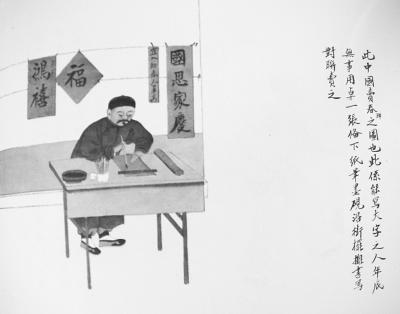 此中國賣春聯之圖也此係能寫大字之人年底
無事用卓一張俻下紙筆墨硯沿街擺攤書寫
對聯賣之
國恩家慶
福
鴻禧